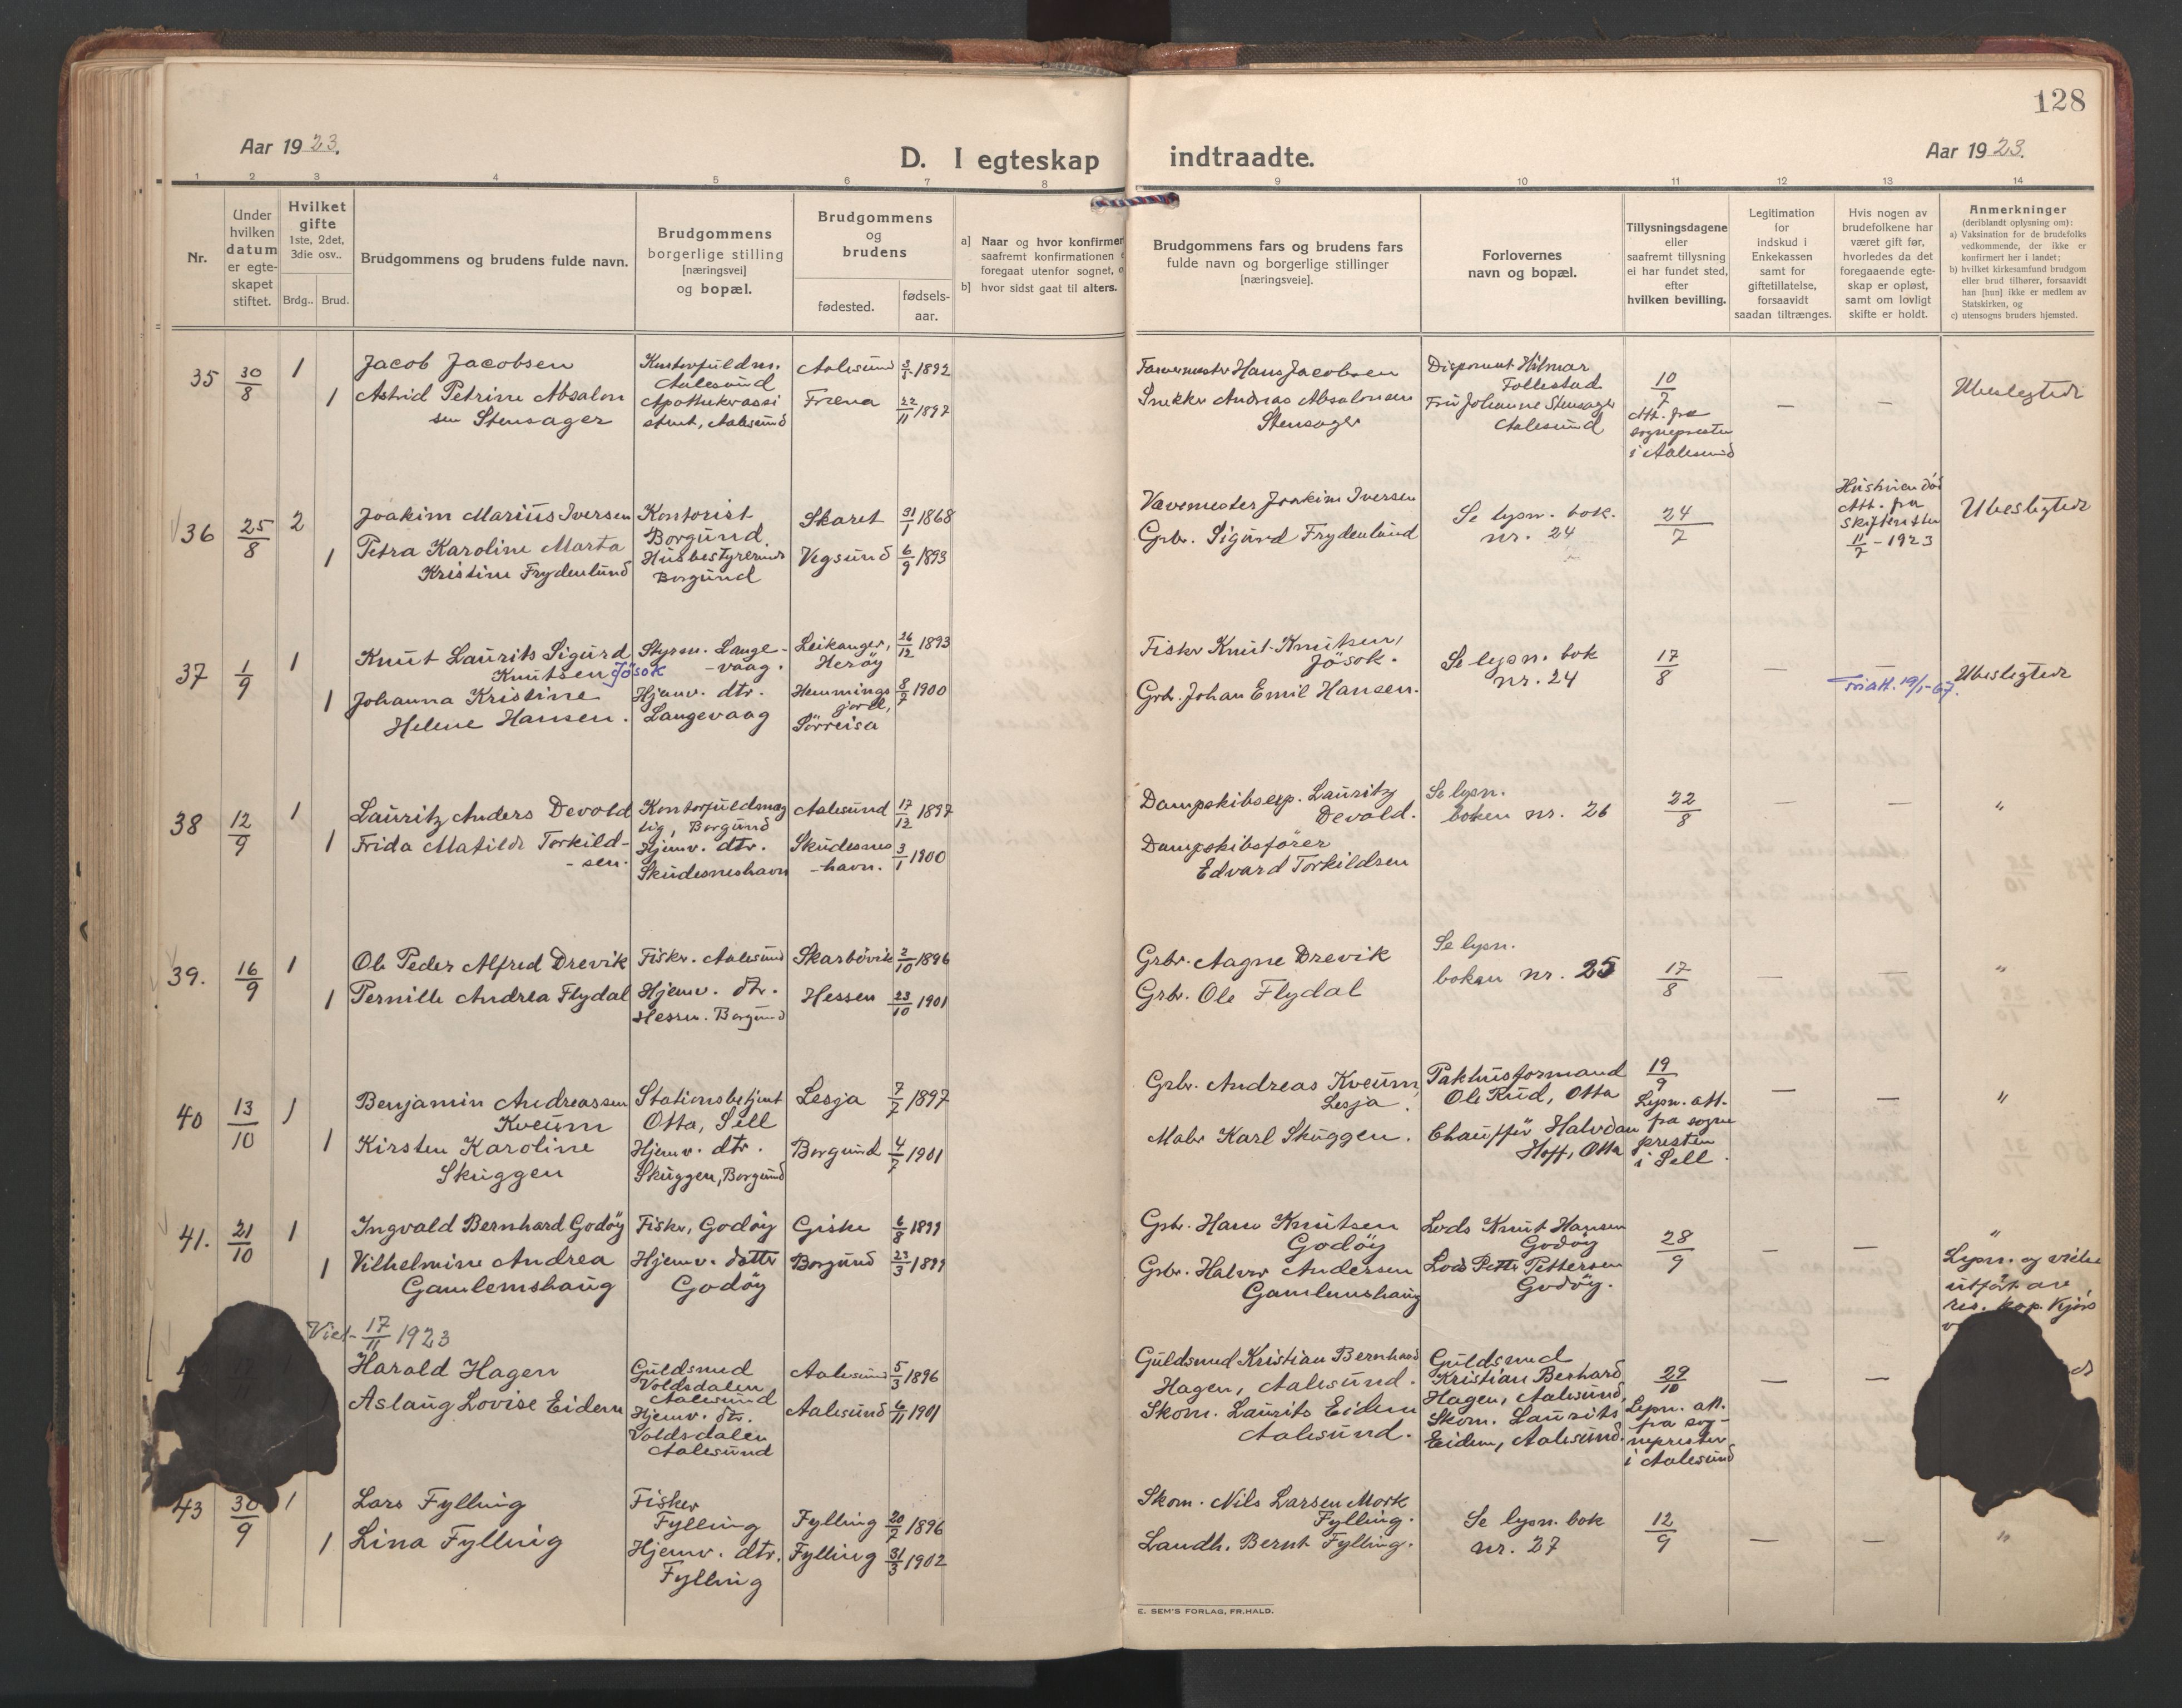 128
Aar 1923.
D. I egteskap indtraadte.
Aar 1923.
1 2 3 4 5 6 7 8 9 10 11 12 13 14
Nr.
Under
hvilken
datum
er egte-
skapet
stiftet.
Hvilket
gifte
1ste, 2det,
3die osv..
Brdg.. Brud.
Brudgommens og brudens fulde navn.
Brudgommens
borgerlige stilling
[næringsvei]
og bopæl.
Brudgommens
og
brudens
fødested.
fødsels-
aar.
a] Naar og hvor konfirmer
saafremt konfirmationen
foregaat utenfor sognet, o
b] hvor sidst gaat til alters.
Brudgommens fars og brudens fars
fulde navn og borgerlige stillinger
[næringsveie].
Forlovernes
navn og bopæl.
Tillysningsdagene
eller
saafremt tillysning
ei har fundet sted,
efter
hvilken bevilling.
Legitimation
for
indskud i
Enkekassen
samt for
giftetillatelse,
forsaavidt
saadan tiltrænges.
Hvis nogen av
brudefolkene har
været gift før,
hvorledes da det
foregaaende egte-
skap er opløst,
samt om lovligt
skifte er holdt.
Anmerkninger
(deriblandt oplysning om):
a) Vaksination for de brudefolks
vedkommende, der ikke er
konfirmert her i landet;
b) hvilket kirkesamfund brudgom
eller brud tilhører, forsaavidt
han [hun] ikke er medlem av
Statskirken, og
c) utensogns bruders hjemsted.
35 30/8 1
Jacob Jacobsen
1 Astrid Petrine Absalon
sen Stensager
Kontorfuldm.
Aalesund
Apothekerassi
stent, Aalesund
Aalesund 1892
Fræna 22/11 1897
Farvermester Hans Jacobsen
Snekker Andreas Absalonsen
Stensager
Disponent Hilmar
Follestad
Fru Johanne Stensager
Aalesund
10/7
Att. fra
sognepresten
i Aalesund
— —
Ubeslegtede
36 25/8 2
Joakim Marius Iversen
1 Petra Karoline Marta
Kristine Frydenlund
Kontorist
Borgund.
Husbestyrerinde
Borgund
Skaret 31/1 1868
Vegsund 6/9 1893
Vævemester Joakim Iversen
Grbr. Sigurd Frydenlund
Se lysn. bok.
nr. 24
24/7
Hustruen död
Att. fra
skifteretten
11/7 - 1923
Ubeslegtede
37 1/9 1
Knut Laurits Sigurd
Knutsen Jösok
1 Johanna Kristine
Helene Hansen.
Styrm. Lange-
-vaag.
Hjemv. dtr.
Langevaag
Leikanger, 26/12 1893
Heröy
Hemmings 8/7 1900
jord,
Sörreisa
Fisker Knut Knutsen,
Jösok.
Grbr. Johan Emil Hansen.
Se lysn. bok
nr. 24
17/8
— —
19/1-67.
Ubeslegtede
38 12/9 1
Lauritz Anders Devold
1 Frida Matilde Torkild-
-sen.
Kontorfuldmæg
tig, Borgund
Hjemv. dtr.
Skudesneshavn
Aalesund 17/12 1897
Skudesnes 3/1 1900
-havn.
Dampskibsexp. Lauritz
Devold.
Dampskibsförer
Edvard Torkildsen
Se lysn.
boken nr. 26
22/8
— — "
39. 16/9 1
Ole Peder Alfred Drevik
1 Pernille Andrea Flydal
Fisker. Aalesund
Hjemv. dtr.
Hessen. Borgund
Skarbövik 2/10 1896
Hessen 23/10 1901
Grbr. Aagne Drevik
Grbr. Ole Flydal
Se lysn.
boken nr. 25
17/8
— — "
40 13/10 1
Benjamin Andreassen
Kveum
1 Kirsten Karoline
Skuggen
Stationsbetjent
Otta, Sell
Hjemv. dtr.
Skuggen, Borgund
Lesja 7/7 1897
Borgund 4/7 1901
Grbr. Andreas Kveum,
Lesja.
Maler Karl Skuggen.
Pakhusformand
Ole Rud, Otta
Chaufför Halvdan
Hoff, Otta
19/9
Lysn. att.
fra sogne
presten
i Sell.
— — "
41. 21/10 1
Ingvald Bernhard Godöy
1 Vilhelmine Andrea
Gamlemshaug
Fisker, Godöy
Hjemv. datter
Godöy
Giske 6/8 1899
Borgund 23/3 1899
Grbr. Hans Knutsen
Godöy
Grbr. Halvor Andersen
Gamlemshaug
Lods Knut Hansen
Godöy
Lods Petter Pettersen
Godöy.
28/9
— — "
Lysn. og vielse
utfört av
res. kap. Kjös
Viet 17/11 1923
Harald Hagen
Aslaug Lovise Eidem
Guldsmed
Voldsdalen
Aalesund
Hjemv. dtr.
Voldsdalen
Aalesund
Aalesund 5/3 1896
Aalesund 6/11 1901
Guldsmed Kristian Bernhard
Hagen, Aalesund.
Skom. Laurits Eidem
Aalesund.
Guldsmed
Kristian Berhard
Hagen, Aalesund,
Skom. Laurits
Eidem, Aalesund.
29/10
Lysn. att.
fra sog-
nepresten
i Aalesund
— —
43 30/9 1
Lars Fylling
1 Lina Fylling
Fisker
Fylling
Hjemv. dtr.
Fylling
Fylling 20/7 1896
Fylling 31/3 1902
Skom. Nils Larsen Mork
Fylling.
Landh. Bernt Fylling.
Se lysn. bok
nr. 27
12/9
— — "
E. SEM'S FORLAG, FR.HALD.